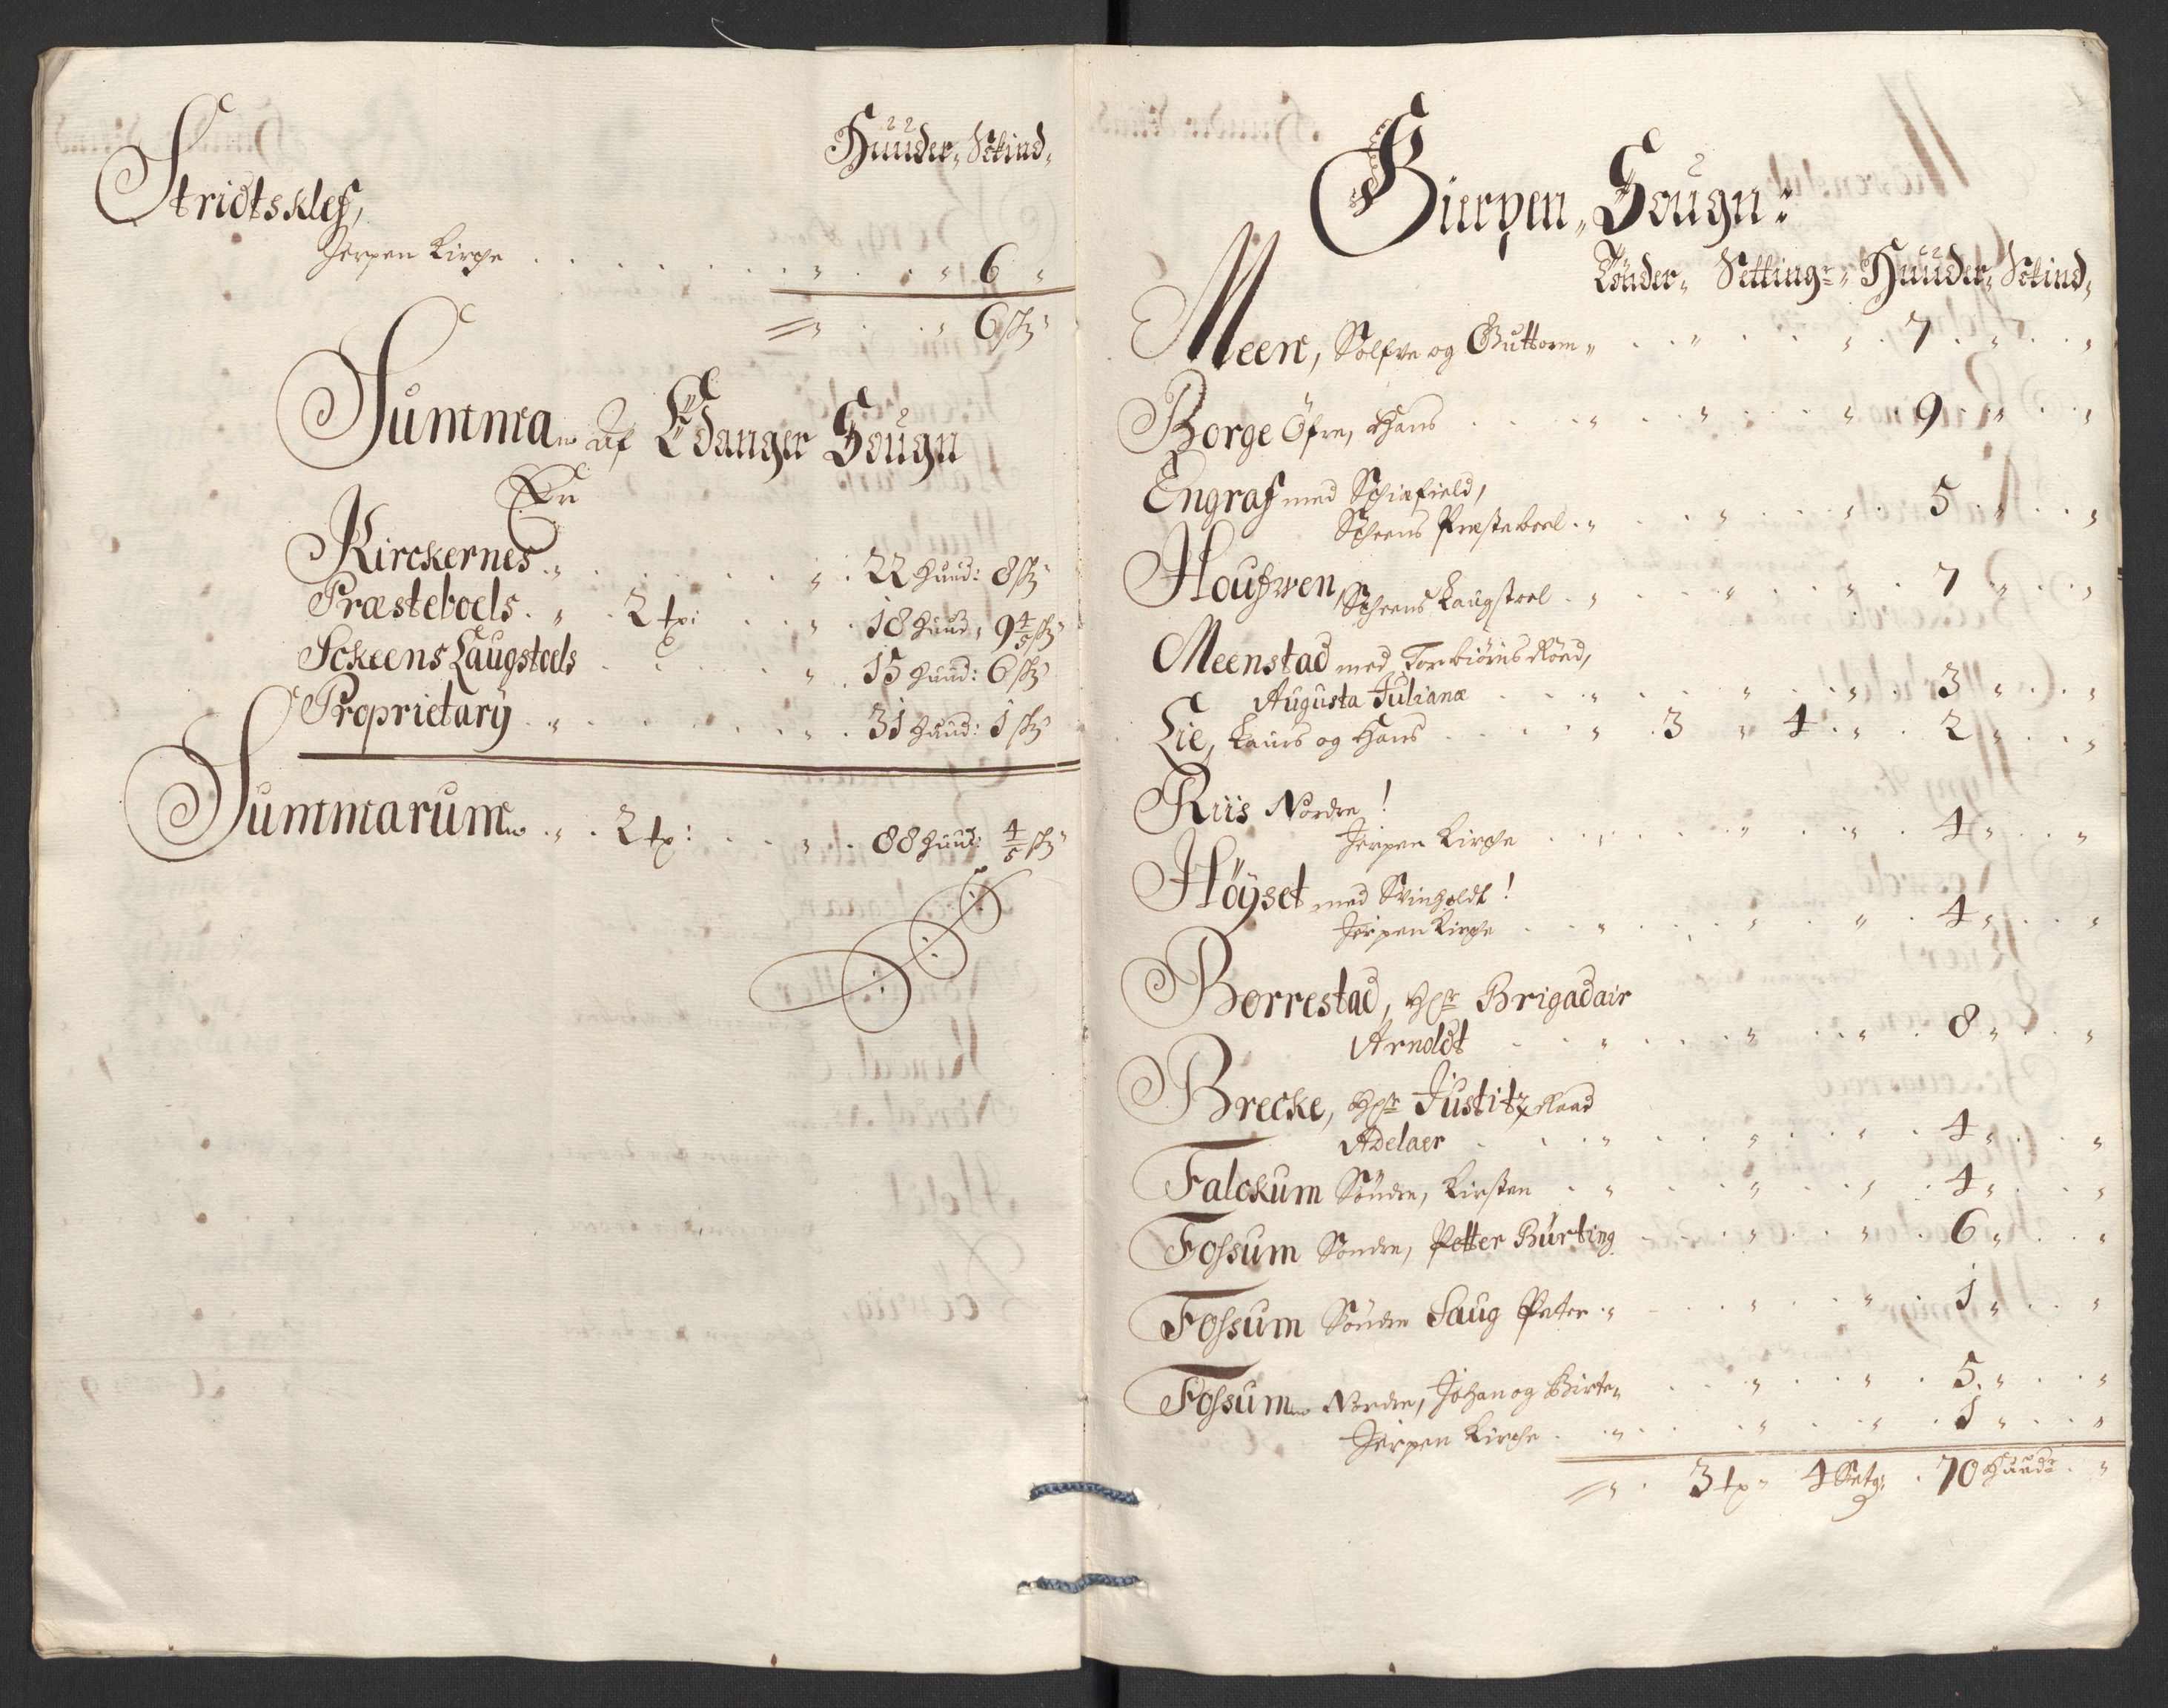 Huuder, Skind,
Stridtsklef,
Jerpen Kirche . . . . . . " . . " 6 "
" . . " 6 sk:
Summa af Edanger Sougn
Er
Kirckernes . " . . . . . " . 22 huud: 8 sk:
Præsteboels . " . 2 tp: . . " . 18 huud, 9 4/5 sk:
Sckeens Laugstoels . . . . " . 15 huud: 6 sk:
Proprietary . " . . . . . " . 31 huud: 1 sk:
Summarum . " . 2 tp: . . " . 88 huud: 4/5 sk:
Gierpen, Sougn:
Tönder, Setting:, Huuder, Skind,
Meen, Solfve og Guttorm " . . " . . " . 7 . " . . "
Borge Öfre, Hans . . . " . . " . . " . 9 . " . . "
Engraf med Schiefield,
Scheens Præsteboel . " . . " . . " . 5 . " . . "
Houfwen, Scheens Laugstoel . " . . " . . " . 7 " . . "
Meenstad med Torbiörns Röed,
Augusta Juliana . . . " . . " . . " . 3 " . . "
Lie, Laurs og Hans . . . . " . 3 " 4 . " . 2 " . . "
Riis Nordre !
Jerpen Kirche . . " . . . " . . " . 4 " . . "
Höyset med Svinholdt !
Jerpen Kirche . . " . . . " . . " . 4 " . . "
Borrestad, Hr Brigadair
Arnoldt . . " . . . " . . " . 8 " . . "
Brecke, Hr Justitz Raad
Adelaer . . . " . . " . . " . 4 " . . "
Falckum Söndre, Kirsten . " . . " . . " . 4 " . . "
Fossum Söndre, Petter Bürting . . " . . " . 6 " . . "
Fossum Söndre Saug Peter . " . . " . . " . 1 " . . "
Fossum Nordre, Johan og Birte " . . " . . " . 5 " . . "
Jerpen Kirche . . " . . " . . " . 1 " . . "
" . 3 tp " 4 Setg: . 70 huudr . "